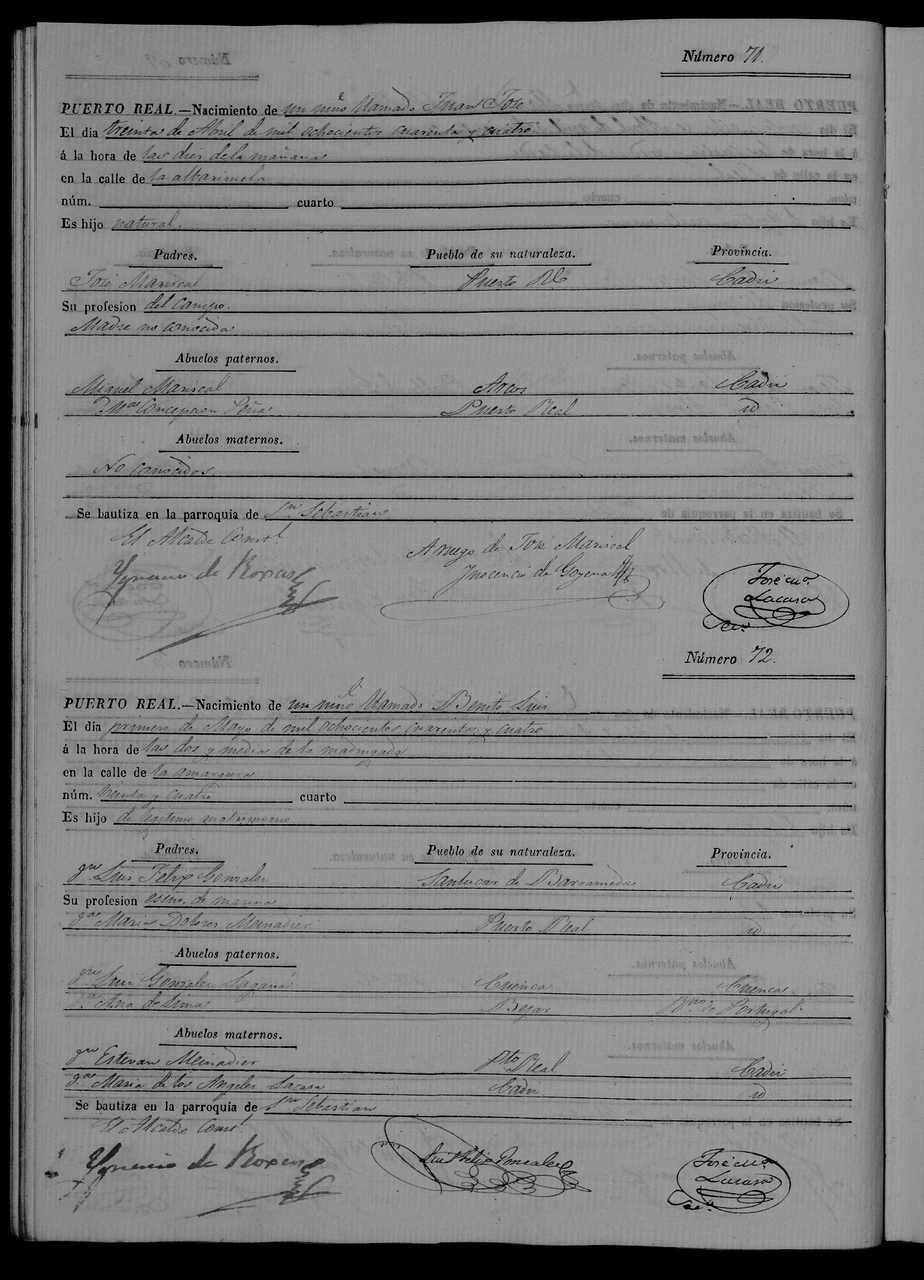 Número 71.
PUERTO REAL.—Nacimiento de un niño llamado Juan José
El dia treinta de Abril de mil ochocientos cuarenta y cuatro
á la hora de las dies de la mañana
en la calle de la
núm. cuarto
Es hijo natural.
Padres. Pueblo de su naturaleza. Provincia.
José Mariscal Puerto Rl Cadiz
Su profesion del campo.
Madre no conocida
Abuelos paternos.
Miguel Mariscal Arcos Cadiz
Concepcion Peña Puerto Real id
Abuelos maternos.
No conocidos
Se bautiza en la parroquia de Sn Sebastian
El Alcalde Const.l
A ruego de José Mariscal
Ygnacio de Inocencio de
José Ma.
Lacasa
Seco.
Número 72.
PUERTO REAL.—Nacimiento de un niño llamado Benito Luis
El dia primero de Mayo de mil ochocientos cuarenta y cuatro
á la hora de las dos y media de la madrugada
en la calle de la amargura
núm. treinta y cuatro cuarto
Es hijo de legitimo matrimonio
Padres. Pueblo de su naturaleza. Provincia.
Luis Felix Gonzalez Sanlucar de Barrameda Cadiz
Su profesion de marina
Maria Dolores Meinadier Puerto Real id
Abuelos paternos.
Gonzalez Cuenca Cuenca
Ana de Lima Bejar de Portugal
Abuelos maternos.
Estevan Meinadier Pto Real Cadiz
Maria de los Angeles Lacasa Cadiz id
Se bautiza en la parroquia de Sn Sebastian
El Alcalde Const.l
Ygnacio de Luis Felix Gonzalez
José Ma.
Lacasa
Seco.